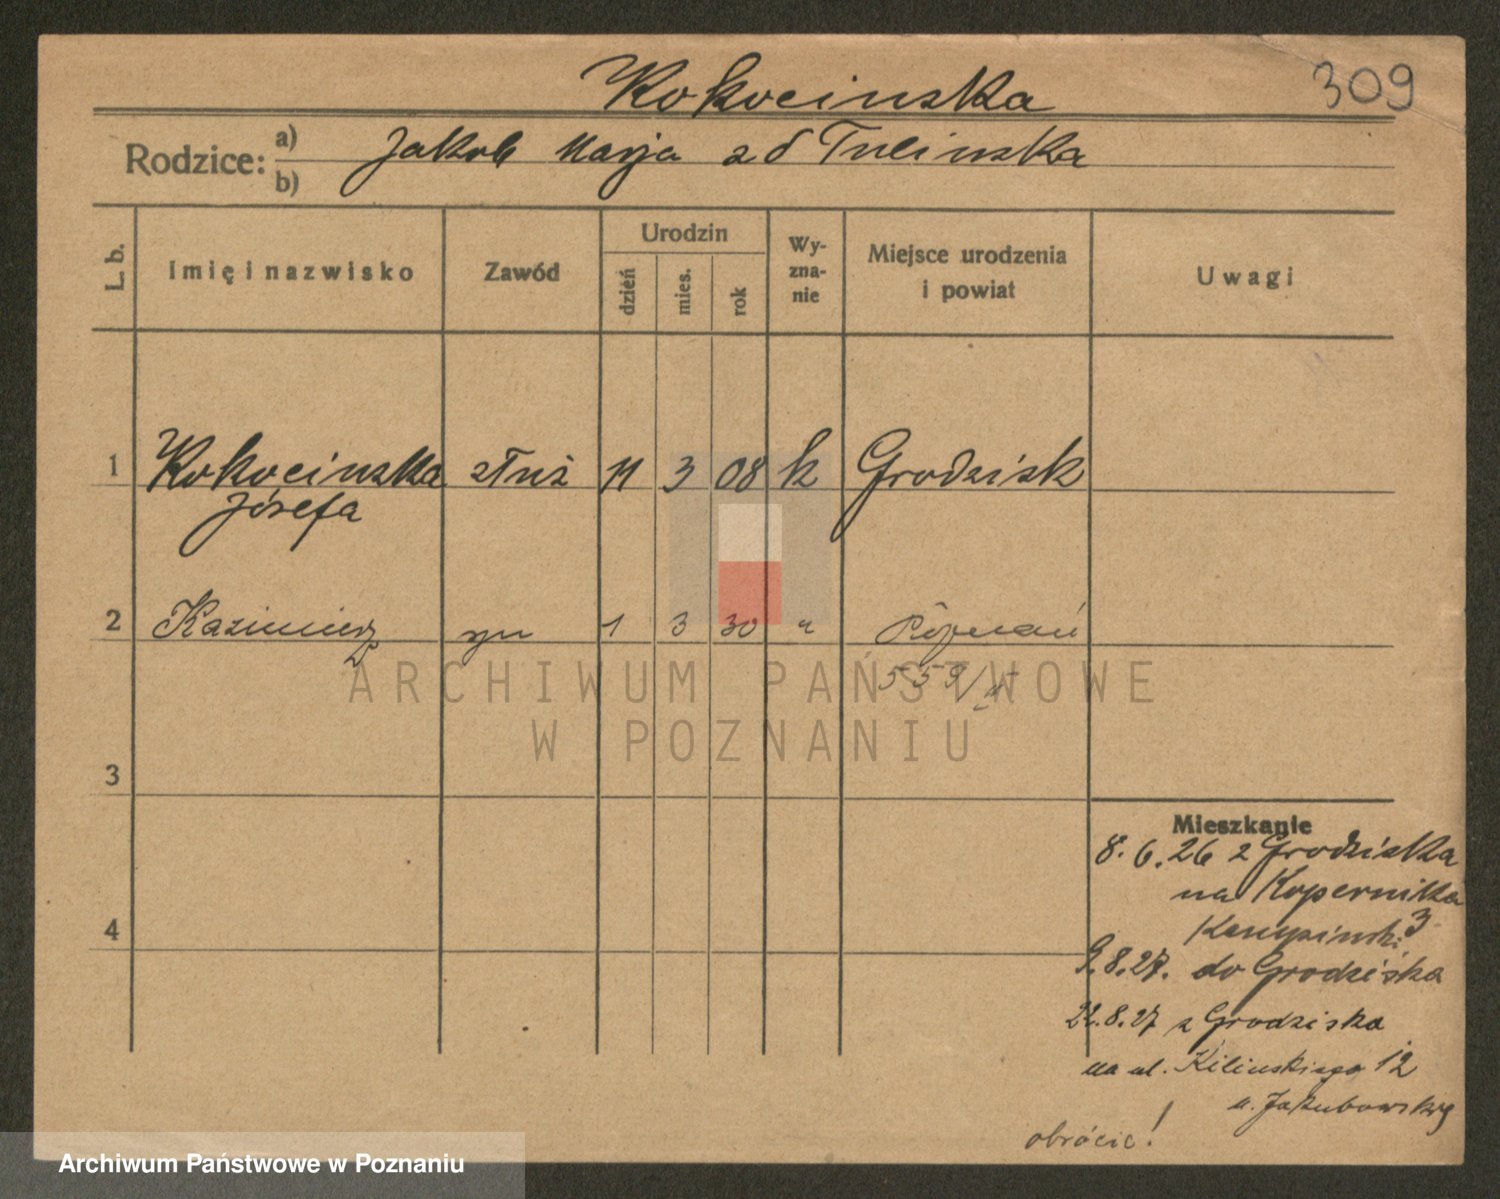 309
Kokocinska
Rodzice: a) b) Jakob Marja zd Tulinska
L. b. Imię i nazwisko Zawód Urodzin dzień mies. rok Wyzna-nie Miejsce urodzenia i powiat Uwagi
1 Kokocinska służ 11 3 08 k Grodzisk
Józefa
2 Kazimierz syn 1 3 30 " Poznań
559/
3
4
Mieszkanie
8.6.26 z Grodziska
na Kopernika
3
9.8.27. do Grodziska
22.8.27 z Grodziska
na ul. Kilinskiego 12
u. Jakubowskiej
obrócić!
ARCHIWUM PAŃSTWOWE
W POZNANIU
Archiwum Państwowe w Poznaniu